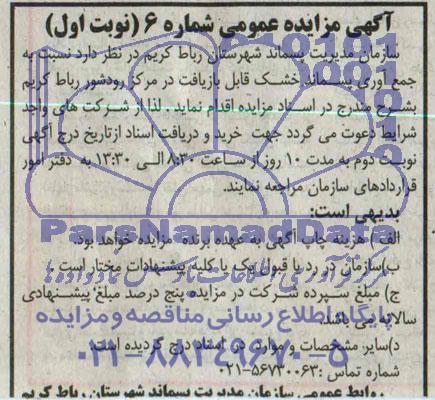 آگهی مزایده عمومی شماره ۶ (نوبت اول)
سازمان مدیریت پسماند شهرستان رباط کریم در نظر دارد نسبت به
جمع آوری پسماند خشک قابل بازیافت در مرکز رودشور رباط کریم
بشرح مندرج در اسناد مزایده اقدام نماید. لذا از شرکت های واجد
شرایط دعوت می گردد جهت خرید و دریافت اسناد از تاریخ درج آگهی
نوبت دوم به مدت ۱۰ روز از ساعت ۸:۳۰ الی ۱۳:۳۰ به دفتر امور
قراردادهای سازمان مراجعه نمایند.
بدیهی است:
الف) هزینه چاپ آگهی به عهده برنده مزایده خواهد بود.
ب)سازمان در رد یا قبول یک یا کلیه پیشنهادات مختار است .
ج) مبلغ سپرده شرکت در مزایده پنج درصد مبلغ پیشنهادی
سالانه می باشد.
د)سایر مشخصات و موارد در اسناد درج گردیده است.
شماره تماس :۵۶۷۳۰۰۶۳-۰۲۱
روابط عمومی سازمان مدیریت پسماند شهرستان رباط کریم
ParsNamadData
پایگاه اطلاع رسانی مناقصه و مزایده
۰۲۱-۸۸۳۴۹۶۷۰-۵